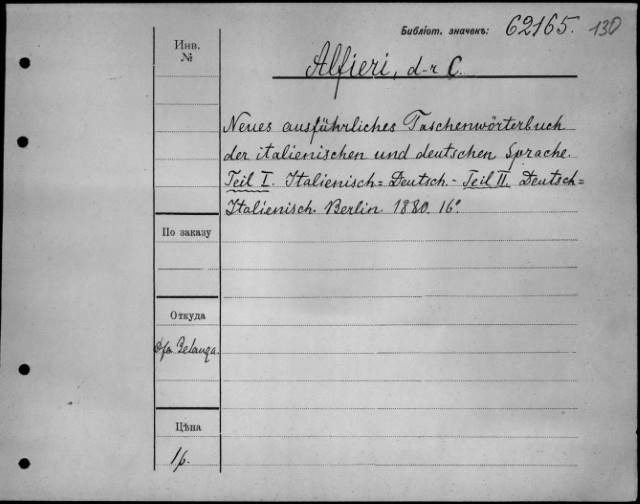 Библіот. значекъ: 62165. 130
Инв.
№
Alfieri, d-r C.
Neues ausführliches Taschenwörterbuch
der italienischen und deutschen Sprache.
Teil I. Italienisch=Deutsch.- Teil II. Deutsch=
Italienisch. Berlin. 1880. 16°.
По заказу
Откуда
Цѣна
1р.